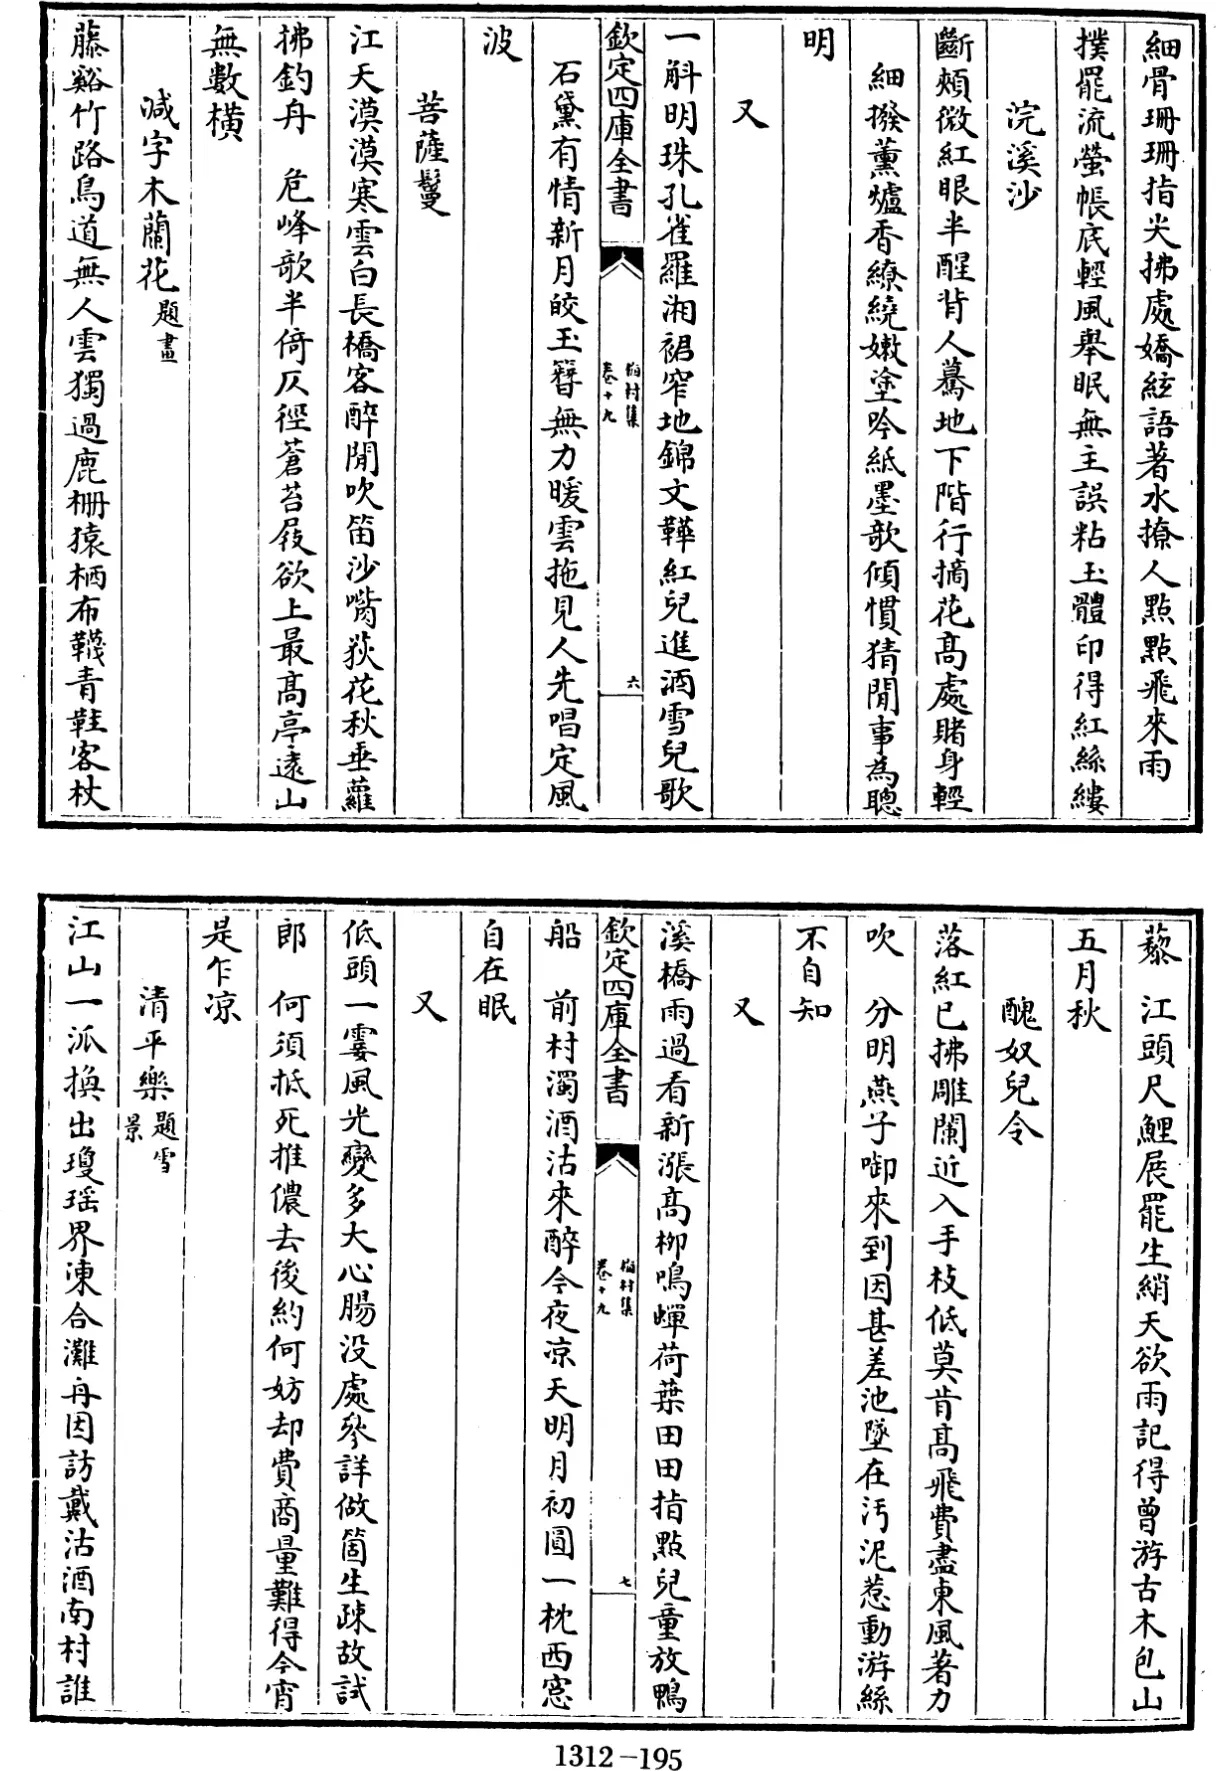 細骨珊珊指尖拂處嬌絃語著水撩人點點飛來雨
撲罷流螢帳底輕風舉眠無主誤粘玉體印得紅絲縷
浣溪沙
斷頰微紅眼半醒背人驀地下階行摘花髙處賭身輕
細撥薰爐香繚繞嫩塗吟紙墨欹傾慣猜閒事為聰
明
又
一斛明珠孔雀羅湘裙窄地錦文鞾紅兒進酒雪兒歌
欽定四庫全書
梅村集
卷十九
六
石黛有情新月皎玉簪無力暖雲拖見人先唱定風
波
菩薩鬘
江天漠漠寒雲白長橋客醉閒吹笛沙嘴荻花秋垂蘿
拂釣舟　危峰欹半倚仄徑蒼苔屐欲上最髙亭遠山
無數橫
減字木蘭花題畫
藤谿竹路鳥道無人雲獨過鹿柵猿栖布韈青鞋客杖
藜　江頭尺鯉展罷生綃天欲雨記得曾游古木包山
五月秋
醜奴兒令
落紅已拂雕闌近入手枝低莫肯髙飛費盡東風著力
吹　分明燕子啣來到因甚差池墜在汚泥惹動游絲
不自知
又
溪橋雨過看新漲髙柳鳴蟬荷葉田田指點兒童放鴨
欽定四庫全書
梅村集
卷十九
七
船　前村濁酒沽來醉今夜凉天明月初圓一枕西窻
自在眠
又
低頭一霎風光變多大心腸没處參詳做箇生疎故試
郎　何須抵死推儂去後約何妨却費商量難得今宵
是乍凉
清平樂題雪景
江山一派換出瓊瑶界凍合灘舟因訪戴沽酒南村誰
1312-195